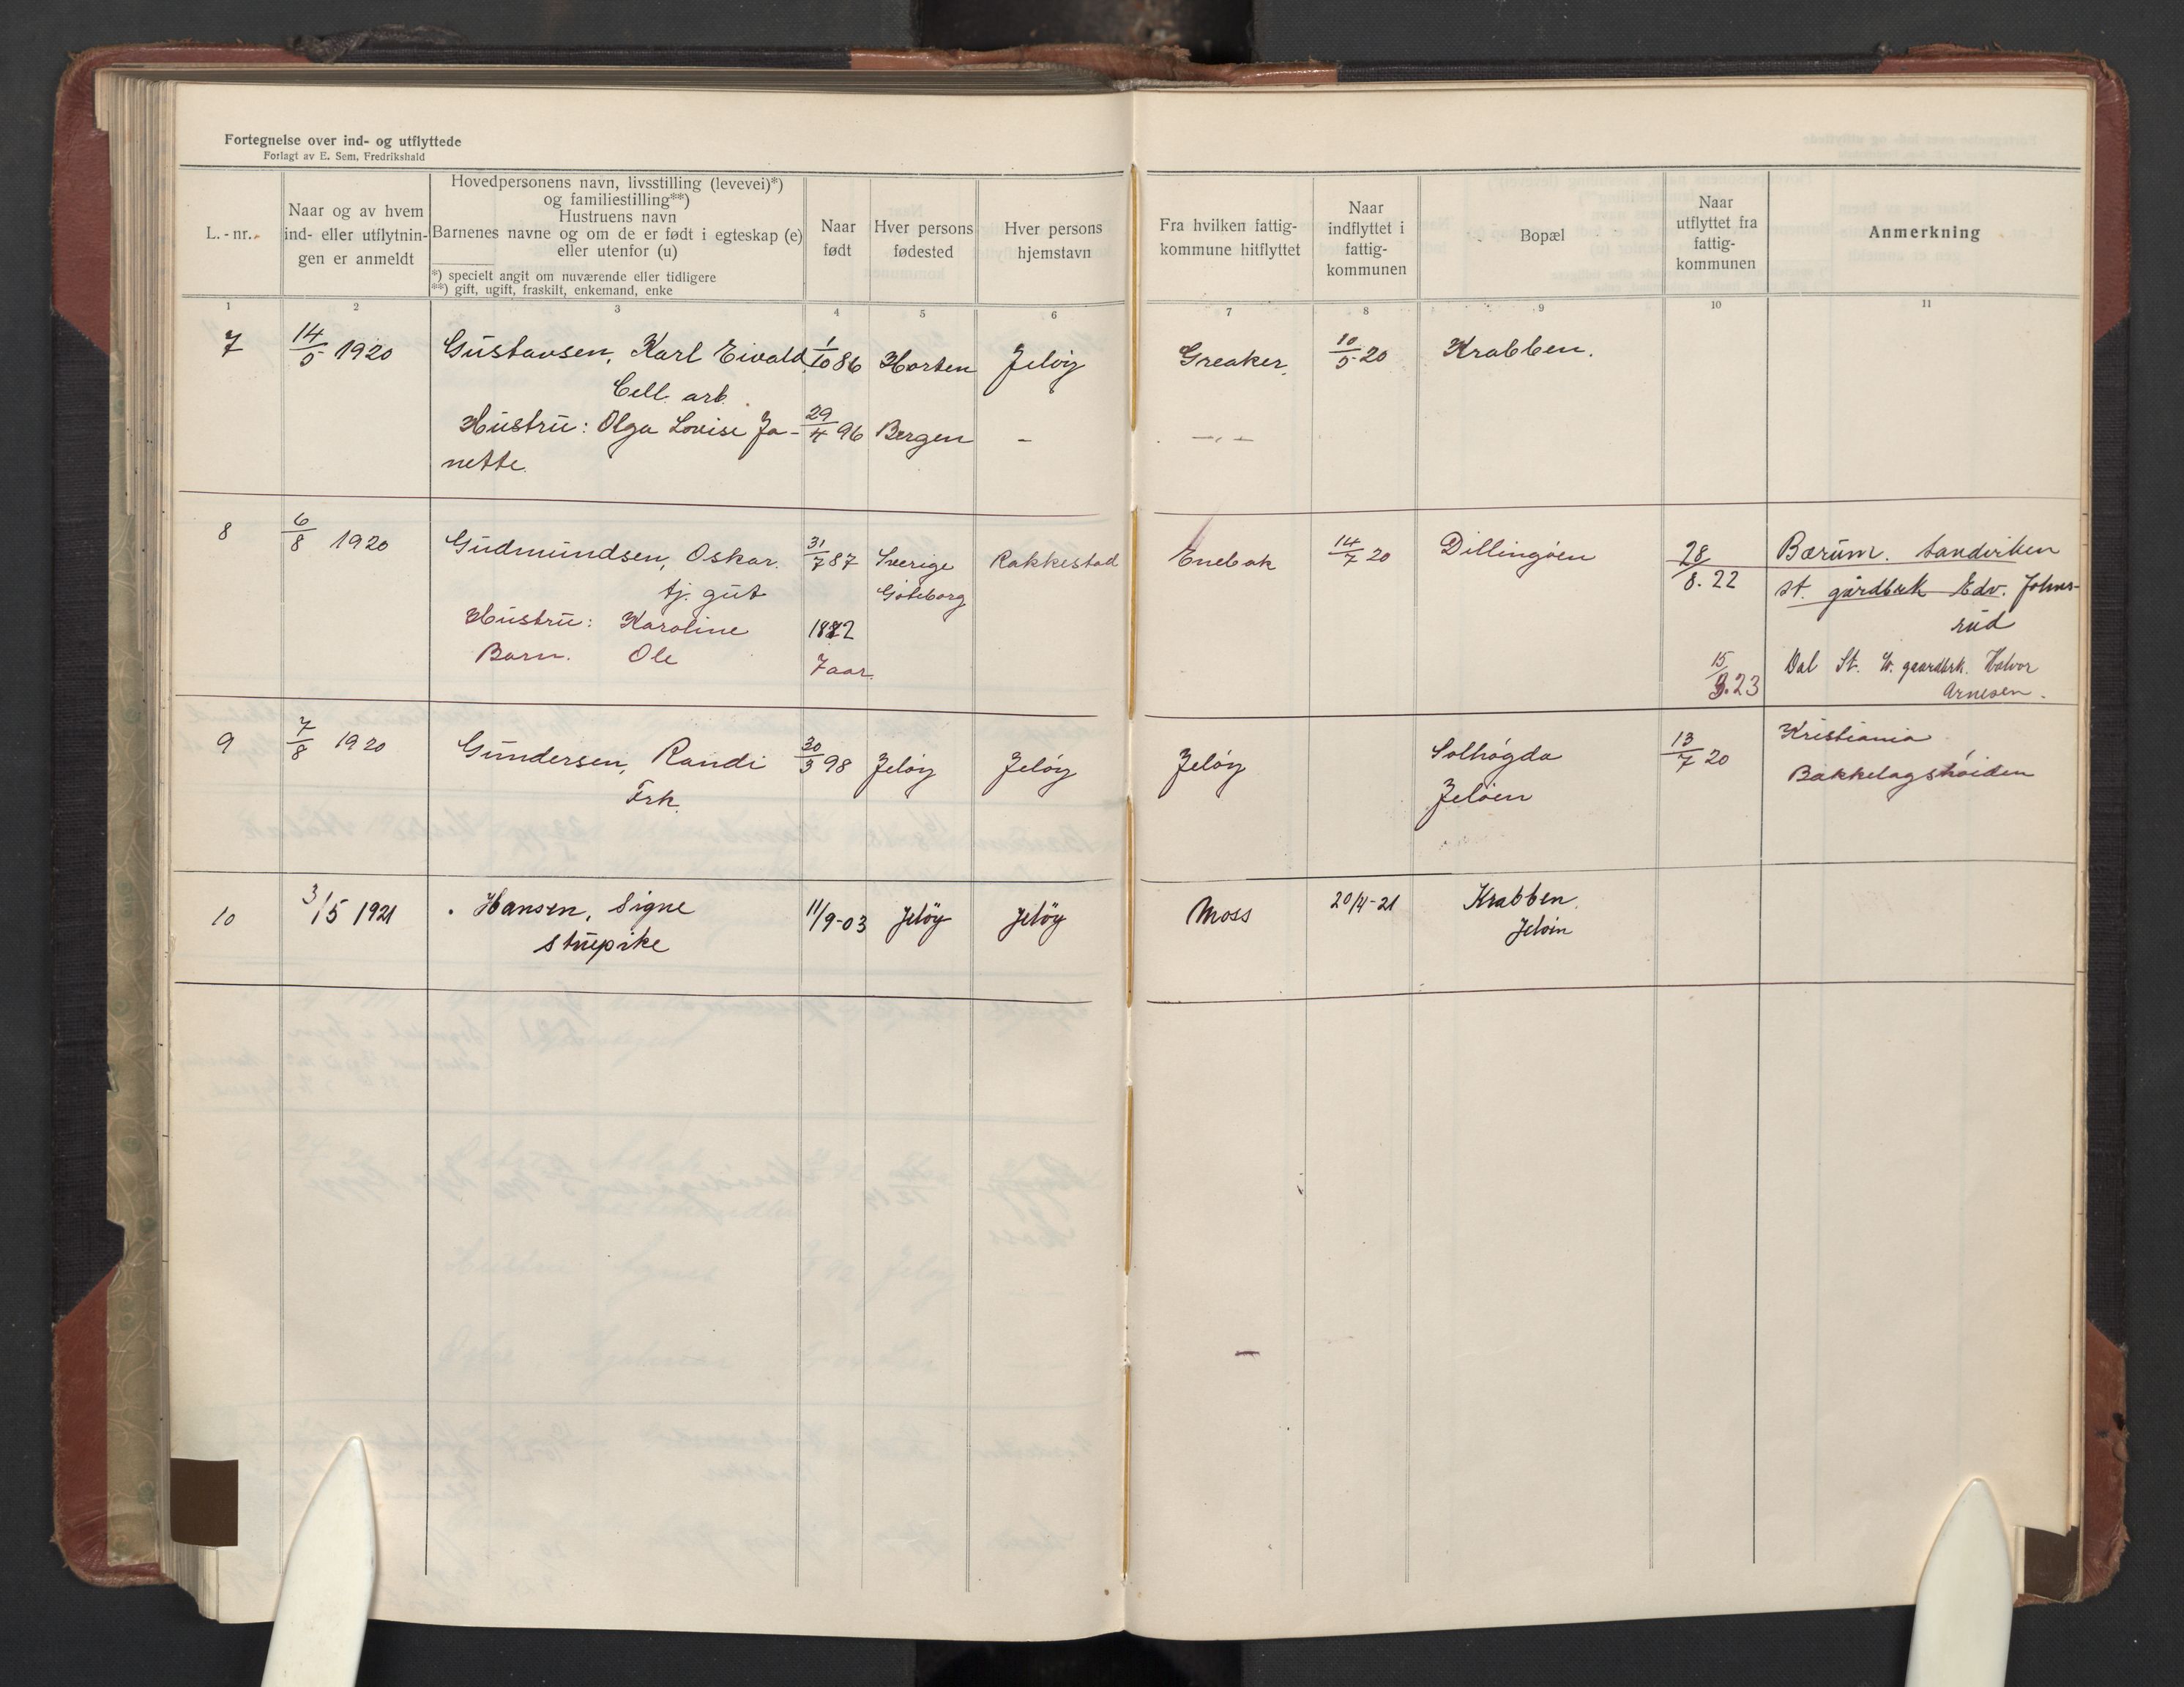 Fortegnelse over ind- og utflyttede
Forlagt av E. Sem, Fredrikshald
L.-nr.
Naar og av hvem
ind- eller utflytnin-
gen er anmeldt
Hovedpersonens navn, livsstilling (levevei)*)
og familiestilling**)
Hustruens navn
Barnenes navne og om de er født i egteskap (e)
eller utenfor (u)
*) specielt angit om nuværende eller tidligere
**) gift, ugift, fraskilt, enkemand, enke
Naar
født
Hver persons
fødested
Hver persons
hjemstavn
Fra hvilken fattig-
kommune hitflyttet
Naar
indflyttet i
fattig-
kommunen
Bopæl
Naar
utflyttet fra
fattig-
kommunen
Anmerkning
1 2 3 4 5 6 7 8 9 10 11
7 14/5 1920 Gustavsen, Karl Eivald 1/10 86 Horten Jeløy Greaker. 10/5 20 Krabben.
Cell. arb.
Hustru: Olga Lovise Ja- 29/4 96 Bergen - -,-
nette.
8 6/8 1920 Gudmundsen, Oskar. 31/7 87 Sverige Rakkestad Enebak 14/7 20 Dillingøen 28/8.22 Bærum. Sandviken
tj. gut Göteborg st. gårdbrk Edv. Johns-
rud
Hustru: Karoline 1872
Barn. Ole 7 aar.
15/3.23 Dal St. gaardbrk. Halvor
Arnesen.
9 7/8 1920 Gundersen, Randi 30/3 98 Jeløy Jeløy Jeløy Solhøgda 13/7 20 Kristiania
Frk. Jeløen Bakkelagshøiden
10 3/5 1921 Hansen, Signe 11/9-03 Jeløy Jeløy Moss 20/4-21 Krabben.
stuepike Jeløin